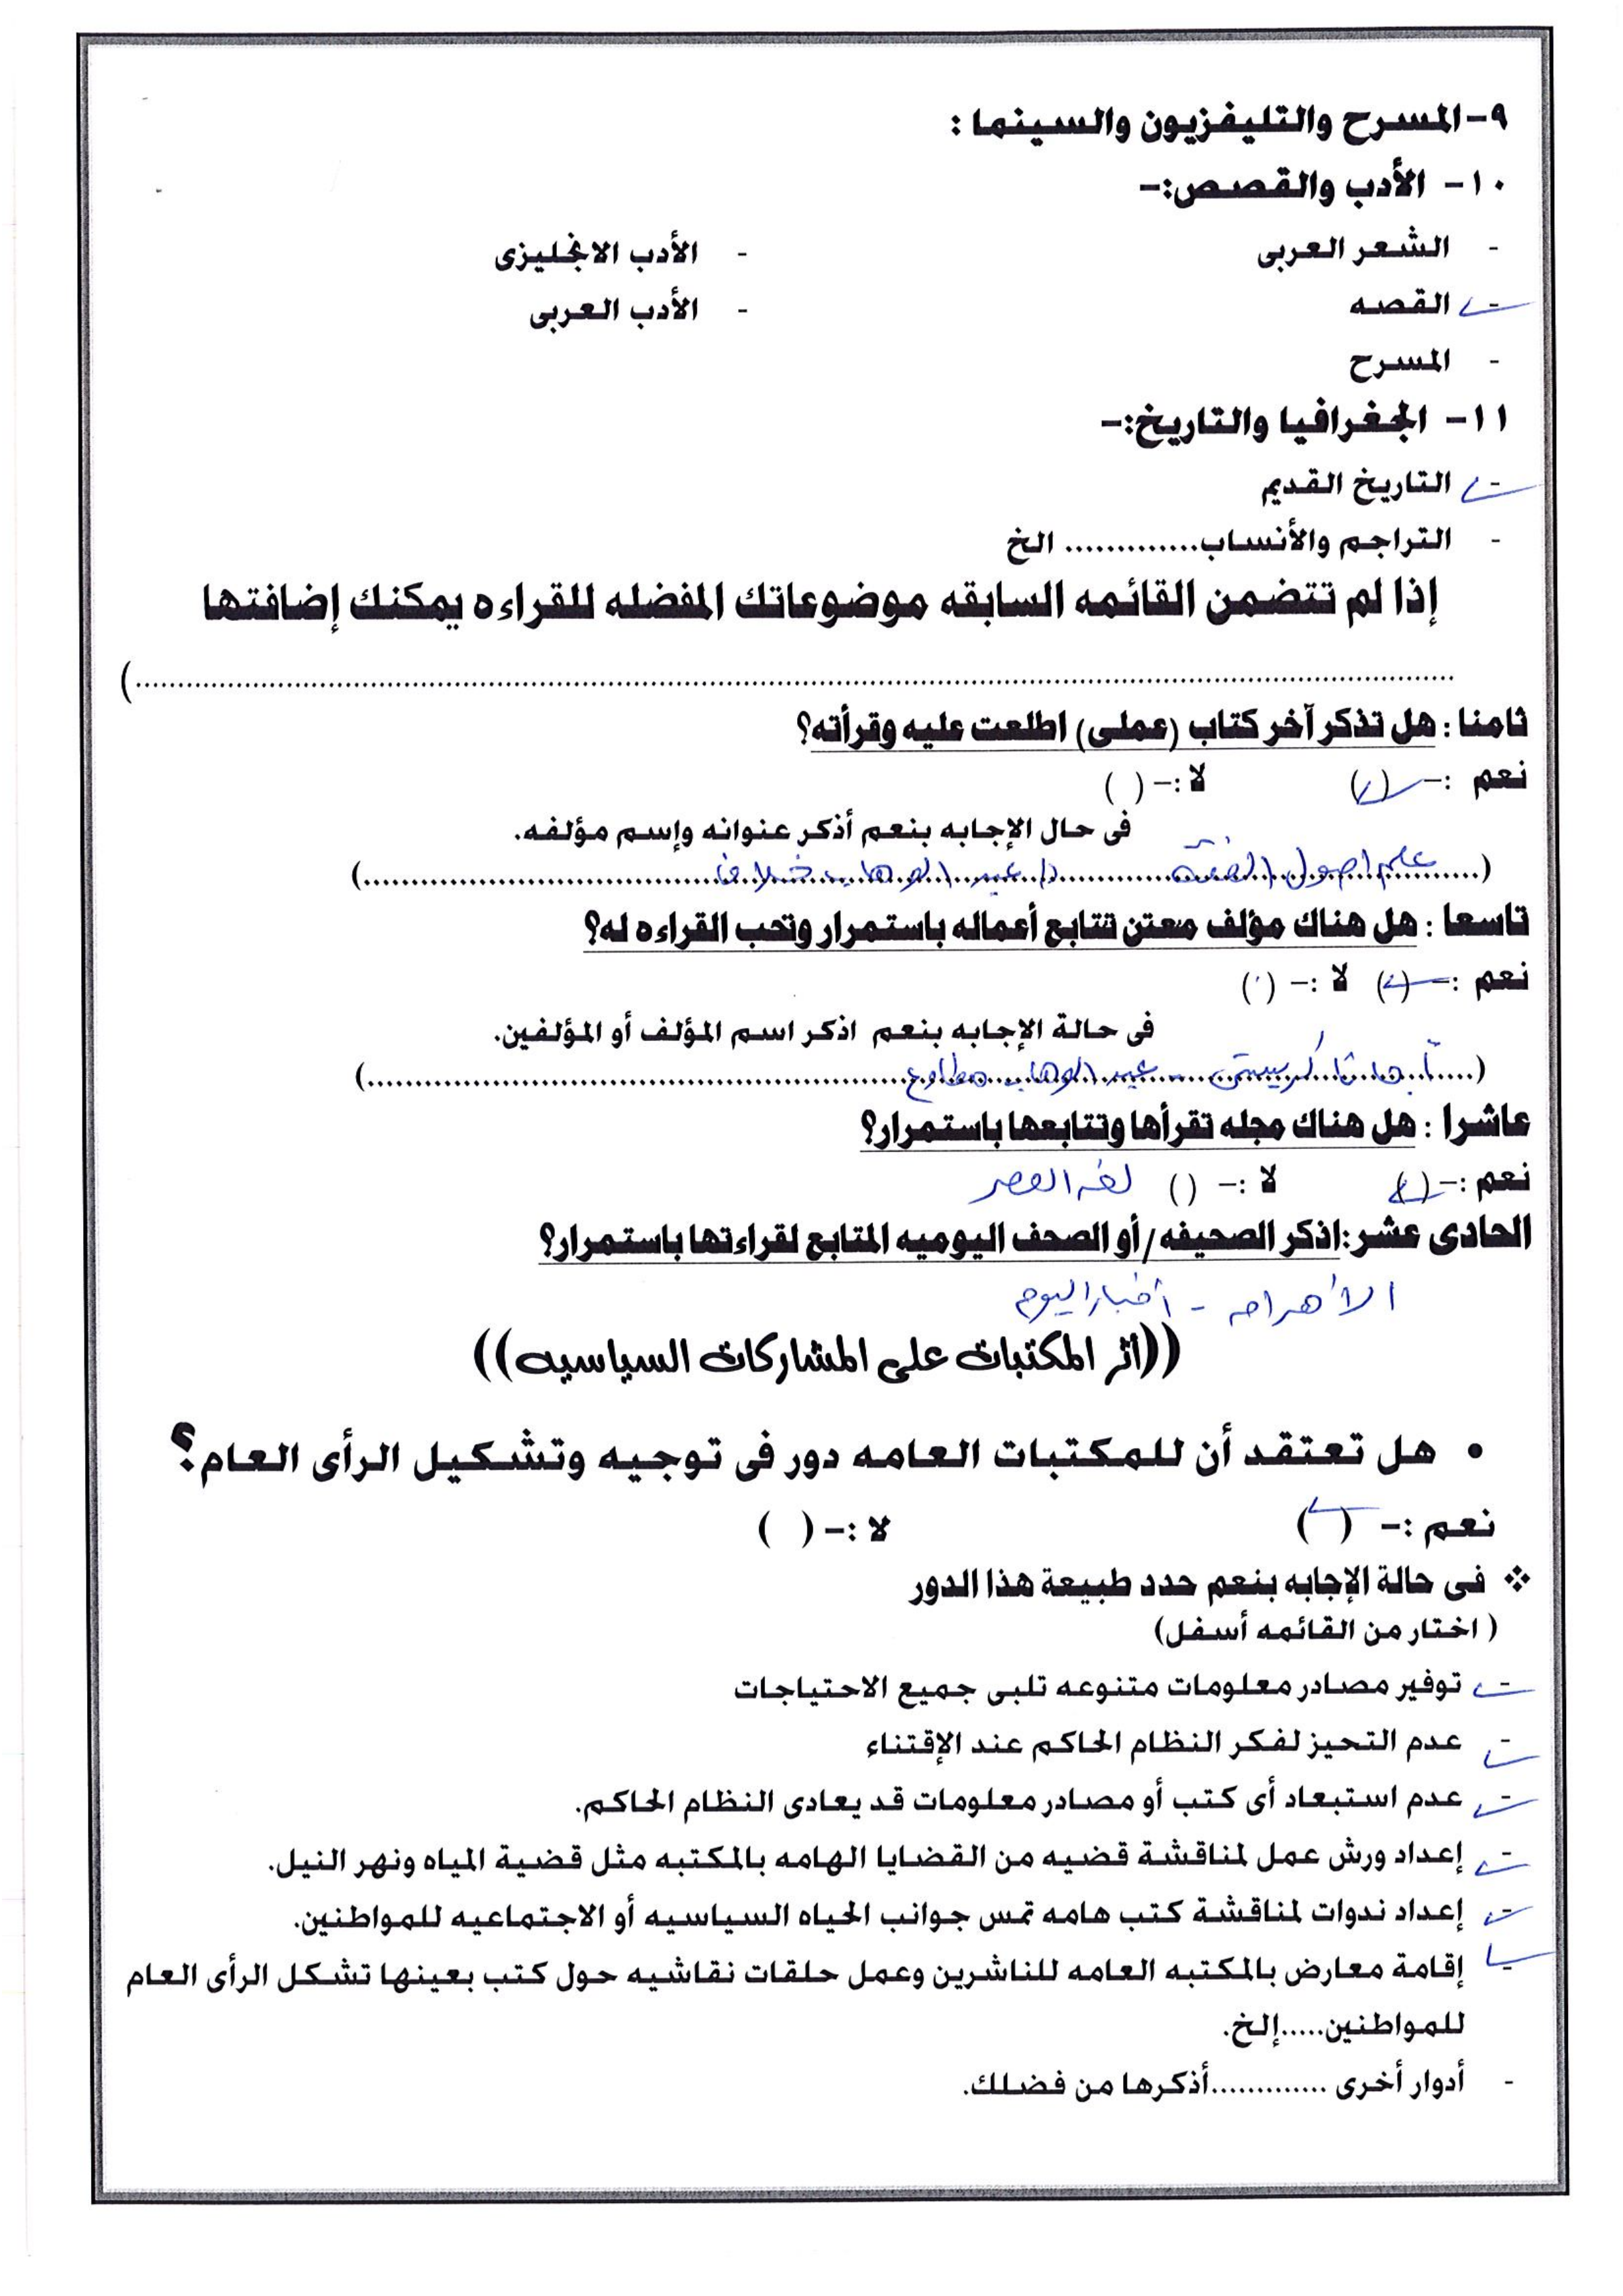 ٩- المسرح والتليفزيون والسينما :
١٠- الأدب والقصص:-
- الشعر العربى - الأدب الانجليزى
- القصه - الأدب العربى
- المسرح
١١- الجغرافيا والتاريخ:-
- التاريخ القديم
- التراجم والأنساب............. الخ
إذا لم تتضمن القائمه السابقه موضوعاتك المفضله للقراءه يمكنك إضافتها
......................................................................)
ثامنا : هل تذكر آخر كتاب (عملى) اطلعت عليه وقرأته؟
نعم :- (✓) لا :- ( )
فى حال الإجابه بنعم أذكر عنوانه وإسم مؤلفه.
(علم اصول الفقه د/ عبد الوهاب خلاف)
تاسعا : هل هناك مؤلف معتن تتابع أعماله باستمرار وتحب القراءه له؟
نعم :- (✓) لا :- ( )
فى حالة الإجابه بنعم اذكر اسم المؤلف أو المؤلفين.
(أجاثا كريستى - عبد الوهاب مطاوع)
عاشرا : هل هناك مجله تقرأها وتتابعها باستمرار؟
نعم :- (✓) لا :- ( ) لغة العصر
الحادى عشر:اذكر الصحيفه/أو الصحف اليوميه المتابع لقراءتها باستمرار؟
الأهرام - أخبار اليوم
((أثر المكتبات على المشاركات السياسيه))
• هل تعتقد أن للمكتبات العامه دور فى توجيه وتشكيل الرأى العام؟
نعم :- (✓) لا :- ( )
❖ فى حالة الإجابه بنعم حدد طبيعة هذا الدور
( اختار من القائمه أسفل)
- توفير مصادر معلومات متنوعه تلبى جميع الاحتياجات
- عدم التحيز لفكر النظام الحاكم عند الإقتناء
- عدم استبعاد أى كتب أو مصادر معلومات قد يعادى النظام الحاكم.
- إعداد ورش عمل لمناقشة قضيه من القضايا الهامه بالمكتبه مثل قضية المياه ونهر النيل.
- إعداد ندوات لمناقشة كتب هامه تمس جوانب الحياه السياسيه أو الاجتماعيه للمواطنين.
- إقامة معارض بالمكتبه العامه للناشرين وعمل حلقات نقاشيه حول كتب بعينها تشكل الرأى العام
للمواطنين.....إلخ.
- أدوار أخرى .............أذكرها من فضلك.